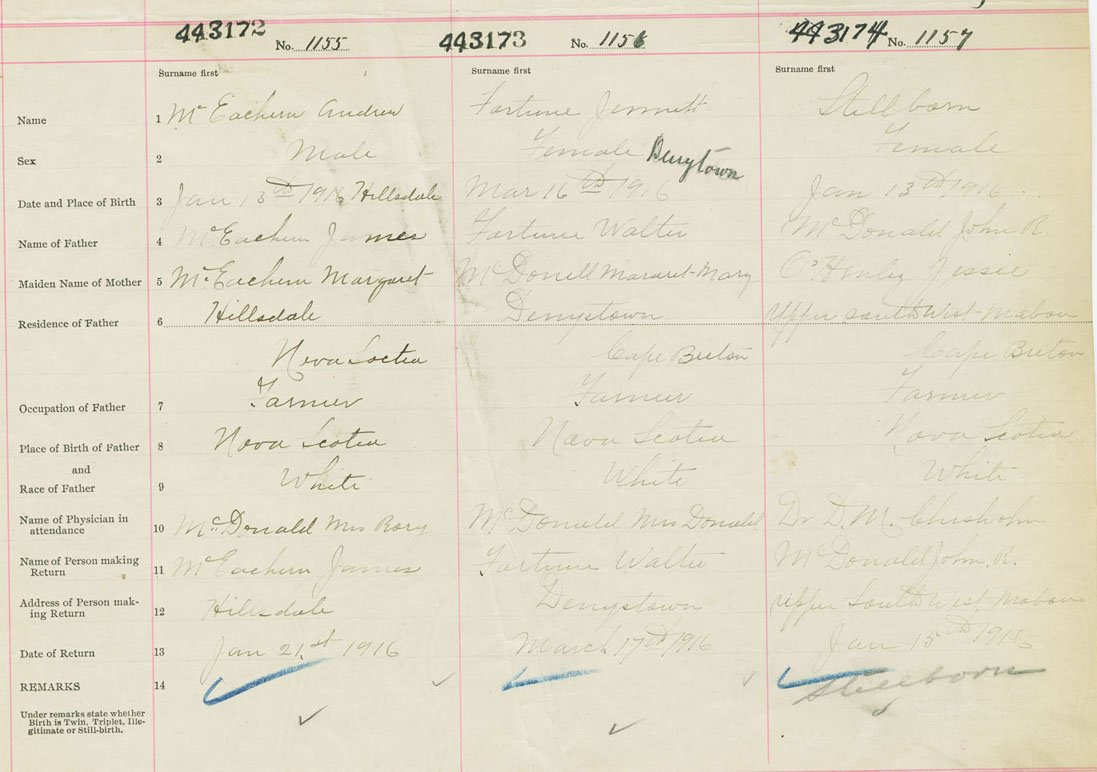 443172 No. 1155 443173 No. 1156 443174 No. 1157
Surname first Surname first Surname first
Name 1 McEachern Andrew Fortune Jennett Stillborn
Sex 2 Male Female Female
Derrytown
Date and Place of Birth 3 Jan 13th 1916 Hillsdale Mar 16th 1916 Jan 13th 1916
Name of Father 4 McEachern James Fortune Walter McDonald John R.
Maiden Name of Mother 5 McEachern Margaret McDonell Mararet Mary O'Henley Jessie
Residence of Father 6 Hillsdale Derrystown Upper South West Mabou
Nova Scotia Cape Breton Cape Breton
Occupation of Father 7 Farmer Farmer Farmer
Place of Birth of Father 8 Nova Scotia Nova Scotia Nova Scotia
and
Race of Father 9 White White White
Name of Physician in
attendance 10 McDonald Mrs Rory McDonald Mrs Donald Dr D. M. Chisholm
Name of Person making
Return 11 McEachern James Fortune Walter McDonald John. R.
Address of Person mak-
ing Return 12 Hillsdale Derrystown Upper South West Mabou
Date of Return 13 Jan 21st 1916 March 17th 1916 Jan 15th 1916
REMARKS 14 Stillborn
Under remarks state whether
Birth is Twin, Triplet, Ille-
gitimate or Still-birth.